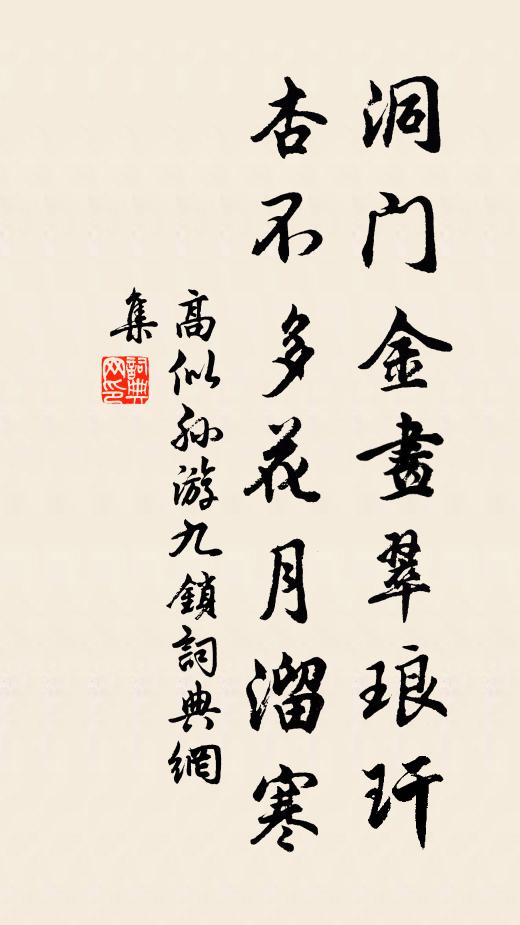 洞门金畫翠琅玕
杏不多花月溜寒
高似孙游九鎖詞典網
集
詞典网印